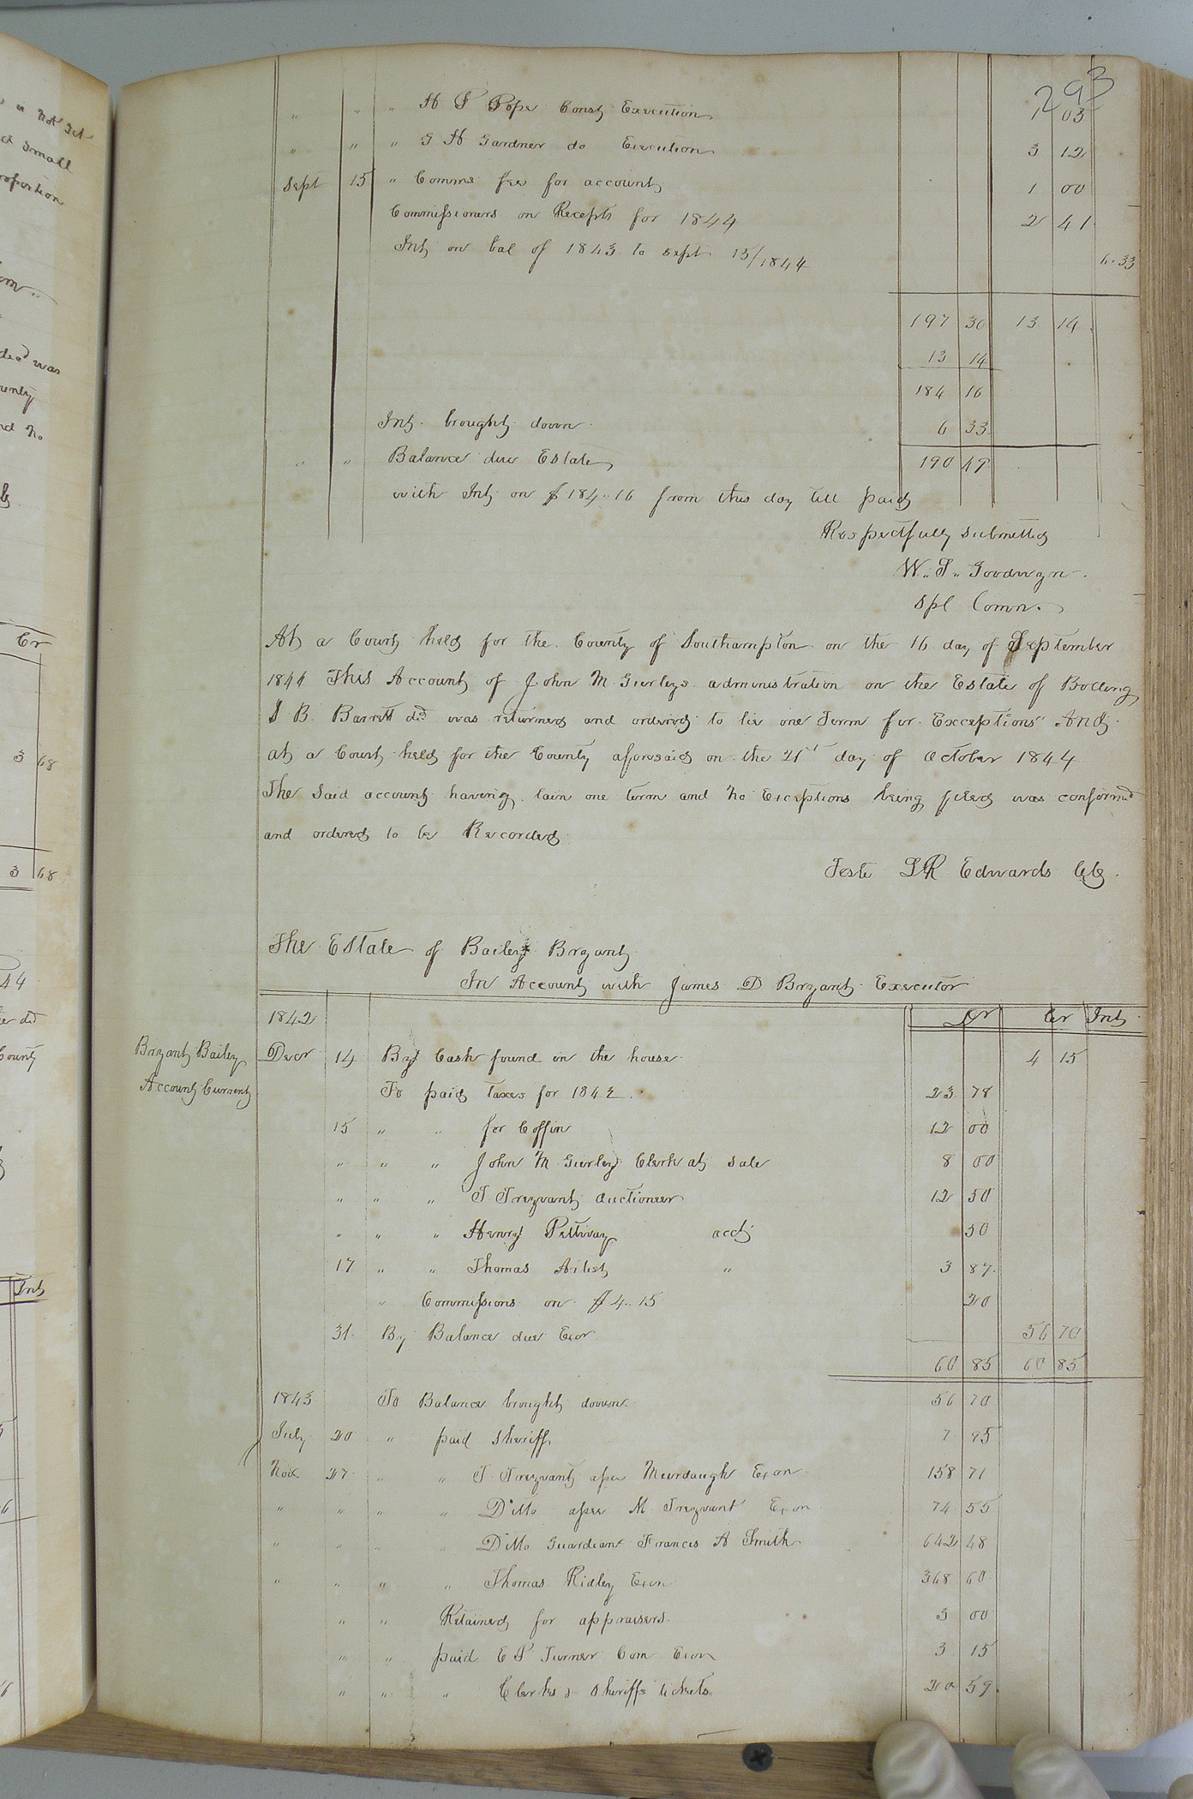 293
" " " H S Pope Const Execution 1 03
" " " G H Gardner do Execution 3 12
Sept 15 " Comms fee for account 1 00
Commissioners on Receipts for 1844 2 41
Int on bal of 1843 to sept 15/1844 6.33
197 30 13 14
13 14
184 16
Int. brought down 6 33
" " Balance due Estate 190 49
with Int on $184.16 from this day till paid
Respectfully submitted
W. S. Goodwyn
Spl Comn.
At a Court held for the County of Southampton on the 16 day of September
1844 This Account of John M Gurleys administration on the Estate of Boding
S B. Barrett dcd was returned and ordered to lie one Term for Exceptions And
at a Court held for the County aforesaid on the 21st day of October 1844
The Said account having lain one term and No Exceptions being filed was confirmd
and ordered to be Recorded
Teste L R Edwards CC.
The Estate of Bailey Bryant
In Account with James D Bryant Executor
1842 Dr Cr Int
Bryant Bailey
Account Current
Decr 14 By Cash found in the house 4 15
To paid taxes for 1842. 23 78
15 " " for Coffin 12 00
" " " John M Gurley Clerk at sale 8 00
" " " T Trezvant auctioneer 12 50
" " " Henry Pettway acct 50
17 " " Thomas " 3 87
" Commissions on $4.15 20
31 By Balance due Exor 56 70
60 85 60 85
1843 To Balance brought down 56 70
July 20 " paid sheriff 7 95
Nov 27 " " T. Trezvant assee Murdaugh Exon 158 71
" " " " Ditto assee M Trezvant Exon 74 55
" " " " Ditto Guardian Francis A Smith 642 48
" " " " Thomas Ridley Exon 368 60
" " Retained for appraisers 3 00
" " paid E P Turner Com Exon 3 15
" " " Clerks & Sheriffs tickets 20 59